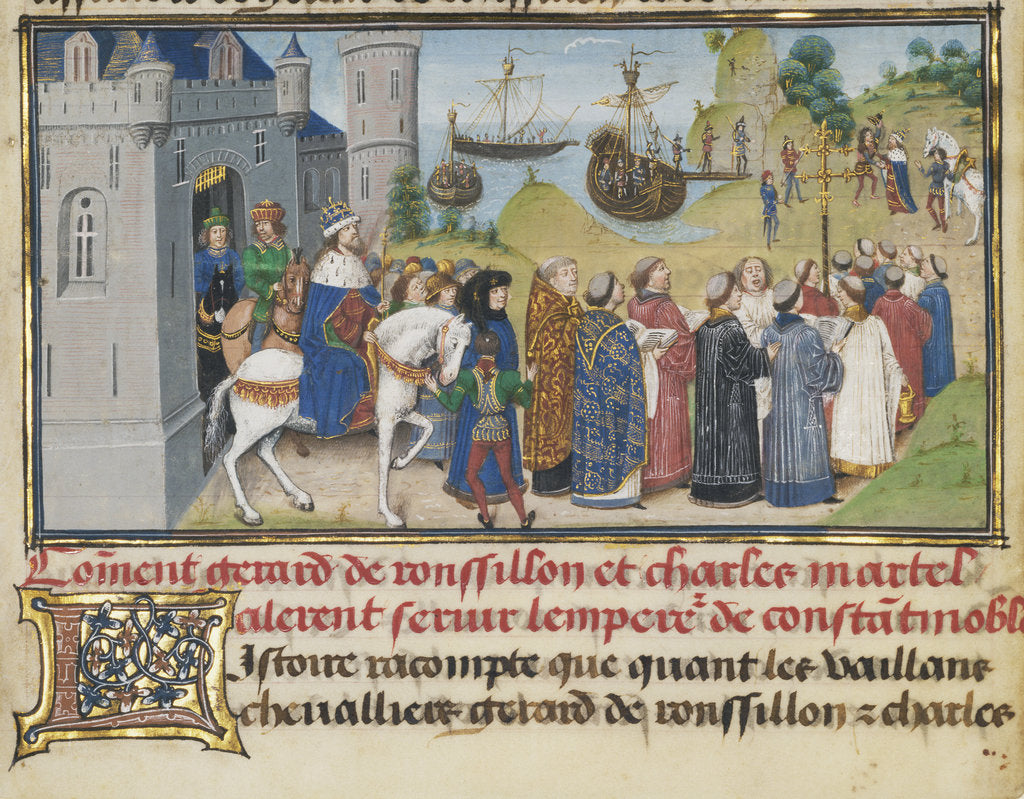 Coment gerard de ronssillon et charles martel
alerent seruir lempere^r de constātinoble
Istoire racompte que quant les vaillans
cheualliers gerard de ronssillon & charles